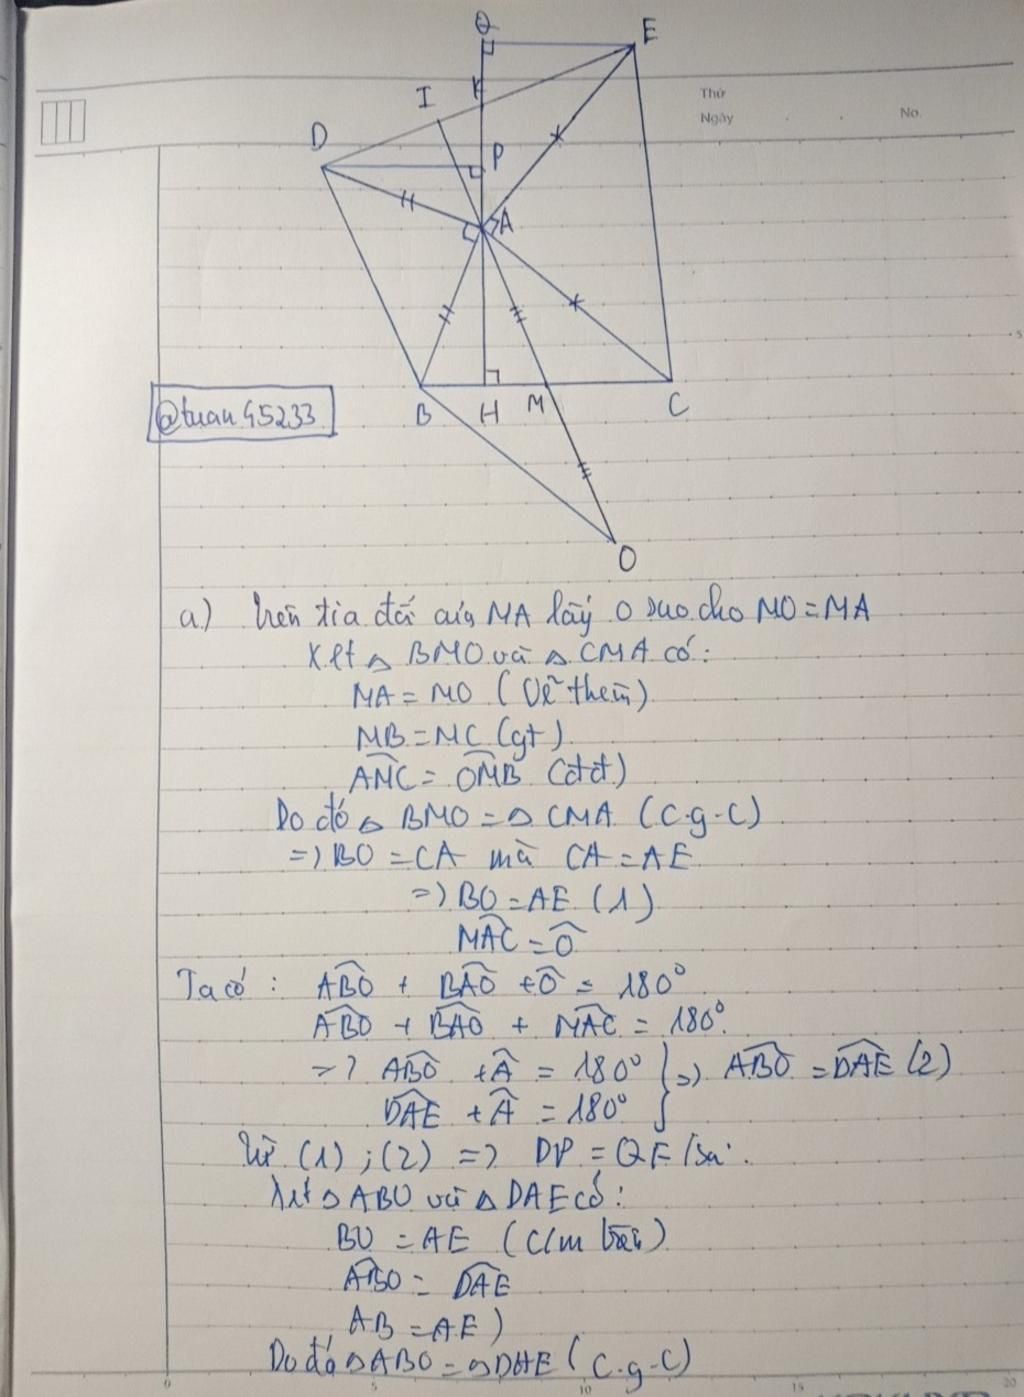 Q
E
K
I
Thứ
Ngày
No.
D
P
A
@tuan45233
B H M C
O
a) trên tia đối của MA lấy O sao cho MO = MA
Xét △ BMO và △ CMA có:
MA = MO (Vẽ thêm)
MB = MC (gt)
AMC = OMB (đđ)
Do đó △ BMO = △ CMA (C-g-C)
=> BO = CA mà CA = AE
=> BO = AE (1)
MAC = O
Ta có: ABO + BAO + O = 180°
ABO + BAO + MAC = 180°
=> ABO + A = 180° } => ABO = DAE (2)
DAE + A = 180°
Từ (1); (2) => DP = QE
Xét △ ABO và △ DAE có:
BO = AE (C/m trên)
ABO = DAE
AB = AE)
Do đó △ ABO = △ DAE (C-g-C)
0 5 10 15 20